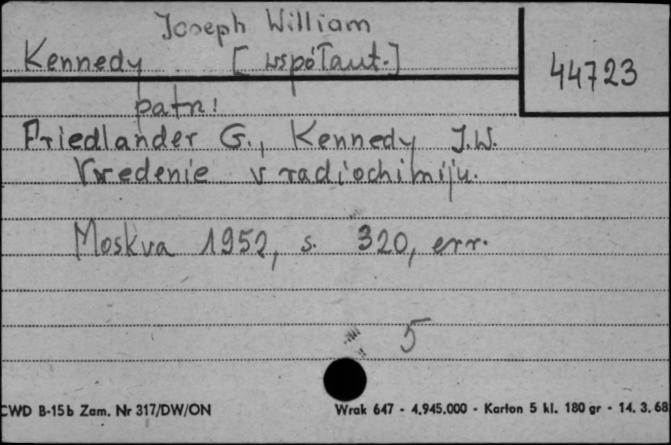 Joseph William
Kennedy [współaut.]
44723
patrz!
Friedlander G., Kennedy J.W.
Vvedenie v radiochimiju.
Moskva 1952, s. 320, err.
5
CWD B-15b Zam. Nr 317/DW/ON Wrak 647 - 4.945.000 - Karton 5 kl. 180 gr - 14. 3. 68